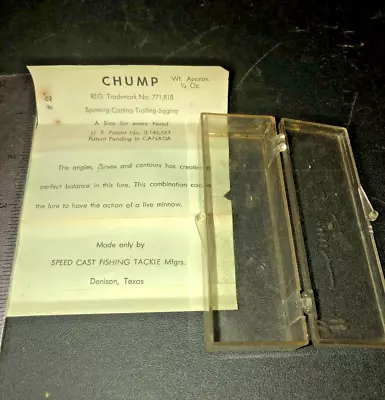 CHUMP
Wt. Approx.
¼ Oz.
REG. Trademark No. 771,818
Spinning-Casting-Trolling-Jigging
A Size for every Need
U. S. Patent No.
Patent Pending in CANADA
The angles, curves and contours has created
perfect balance in this lure. This combination
the lure to have the action of a live minnow.
Made only by
SPEED CAST FISHING TACKLE Mfgrs.
Denison, Texas